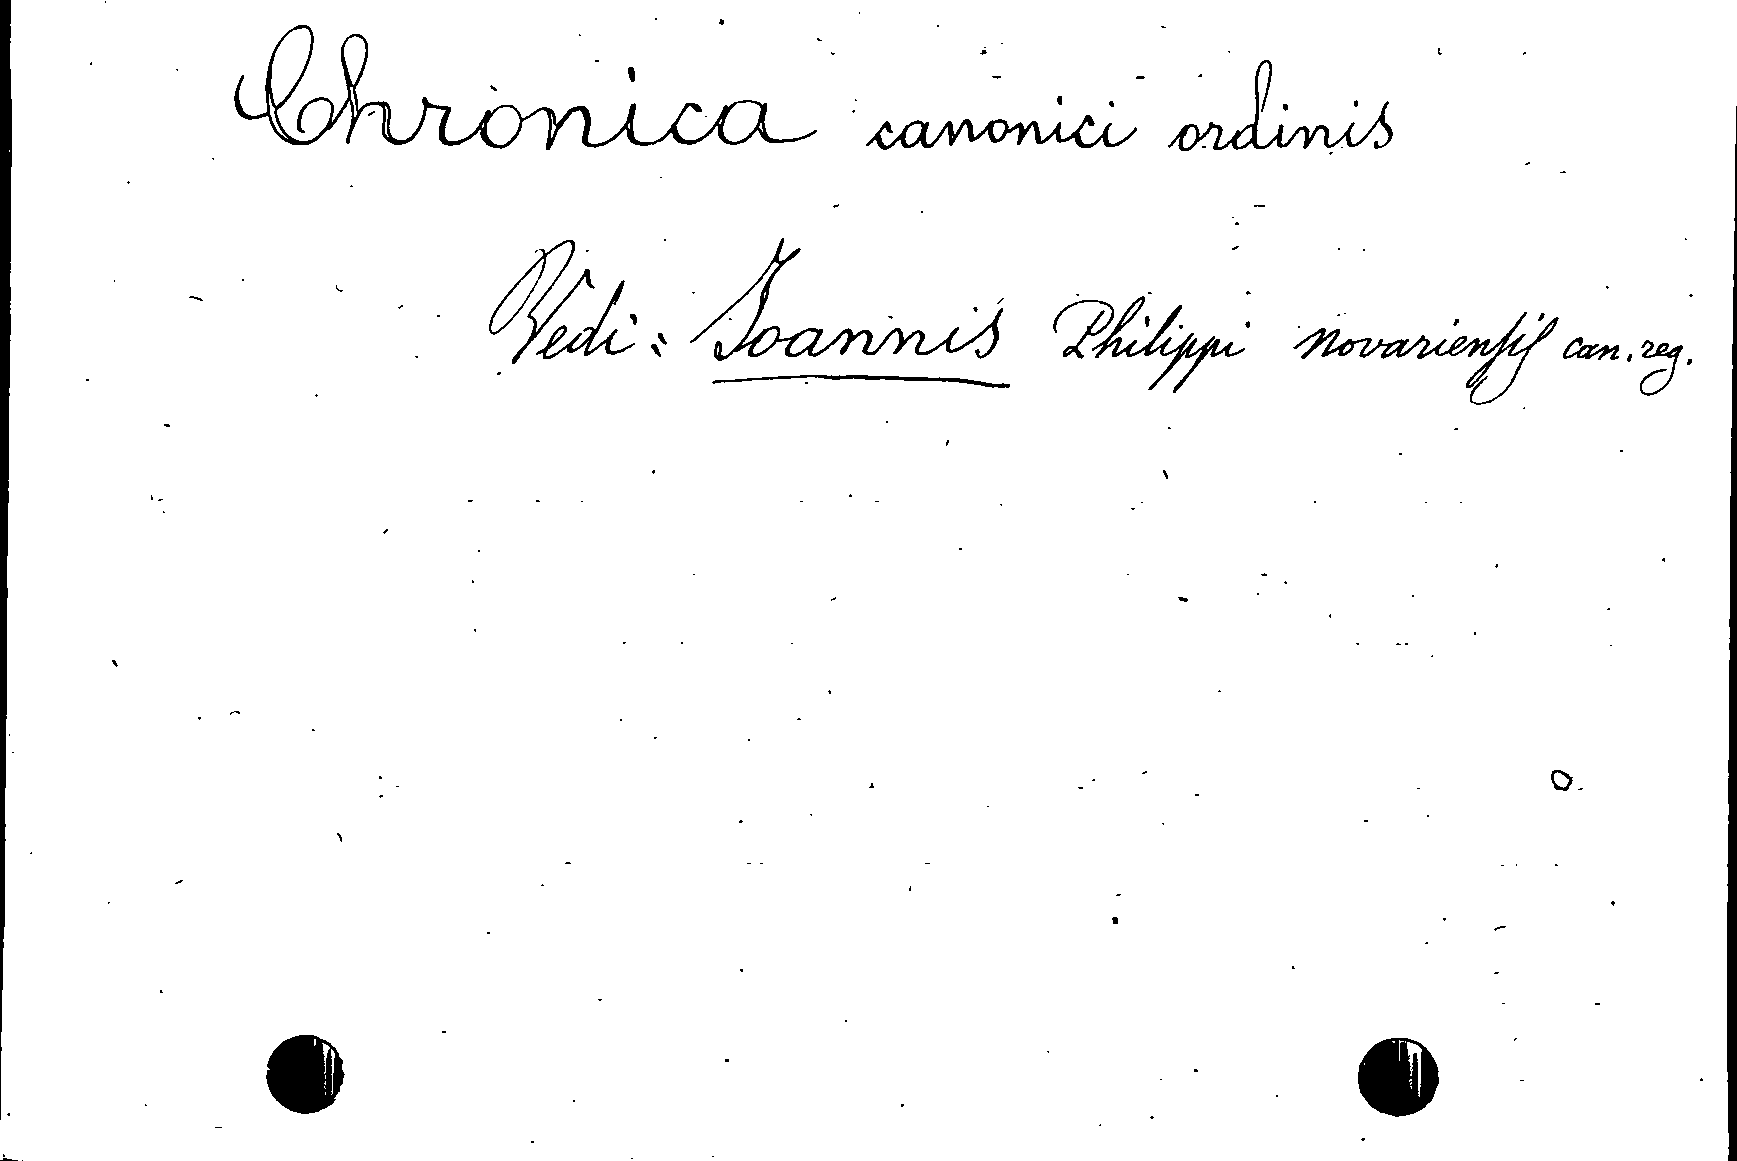 Chronica canonici ordinis
Vedi: Joannis Philippi novariensis can. reg.